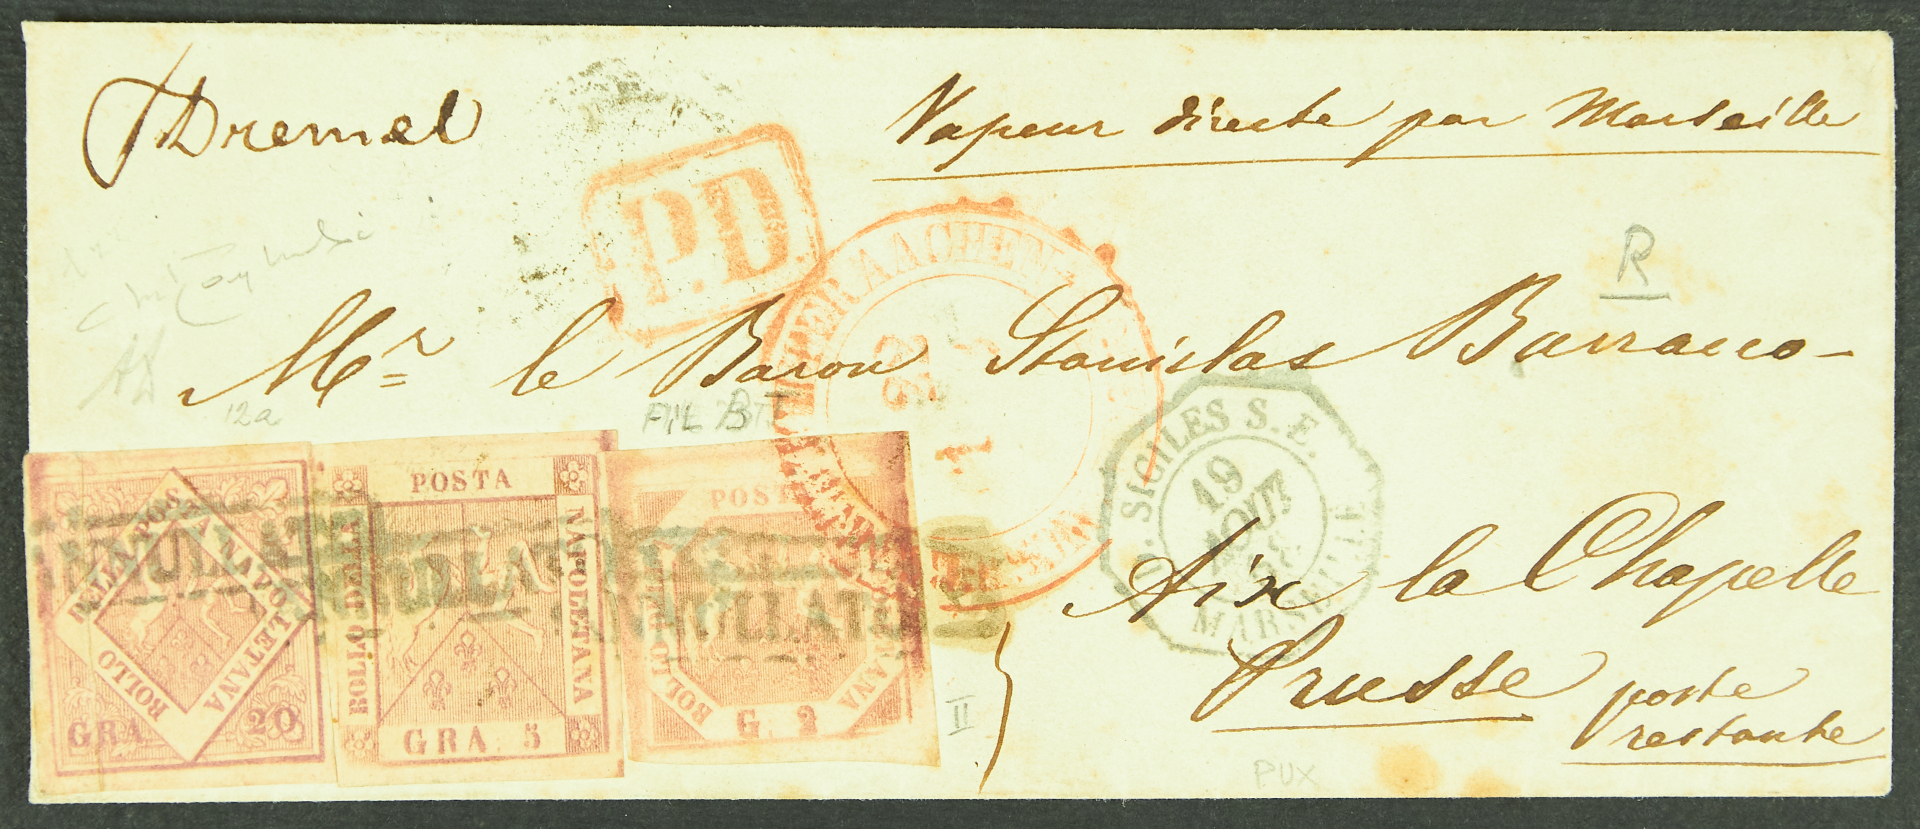 Dremel
Vapeur directe par Marseille
P.D
R
Mr le Baron Stanislas Barracco
12a
D. SICILES S. E.
19
AOUT
58
MARSEILLE
Aix la Chapelle
Prusse poste
restante
BOLLO DELLA POSTA NAPOLETANA
GRA 20
POSTA
BOLLO DELLA
NAPOLETANA
GRA. 5
POSTA
BOLLO
G. 2
ANNULLATO
ANNULLATO
ANNULLATO
II
PUX